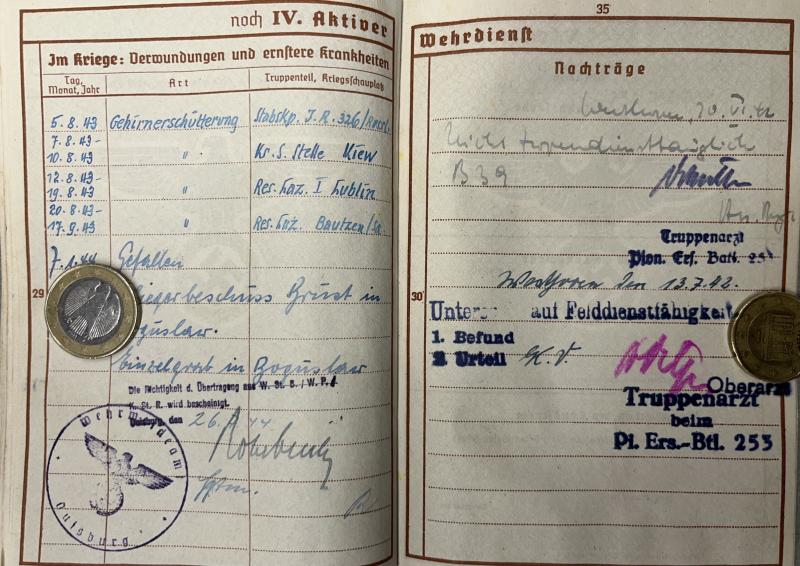 noch IV. Aktiver
Im Kriege: Verwundungen und ernstere Krankheiten
Tag, Monat, Jahr
Art
Truppenteil, Kriegsschauplatz
5.8.43 Gehirnerschütterung Stabskp. J.R. 326/
7.8.43 -
10.8.43 " Kr. S. Stelle Kiew
12.8.43 -
19.8.43 " Res. Laz. I Lublin
20.8.43 -
17.9.43 " Res. Laz. Bautzen/Sa.
7.1.44 Gefallen
29
beschuss Brust in
Einzelgrab in Boguslaw
Die Richtigkeit d. Übertragung aus W. St. B. / W. P.
K. St. R. wird bescheinigt.
Duisburg, den 26. 44
Hptm.
Wehrmeldeamt
Duisburg
35
Wehrdienst
Nachträge
Westhoven, 20.VI.42
Nicht tropendiensttauglich
B 39
Truppenarzt
Pion. Ers. Batl. 25
30
Westhoven den 13.7.42.
Unters auf Felddienstfähigkeit
1. Befund
2. Urteil K.V.
Oberarzt
Truppenarzt
beim
Pi. Ers.-Btl. 253